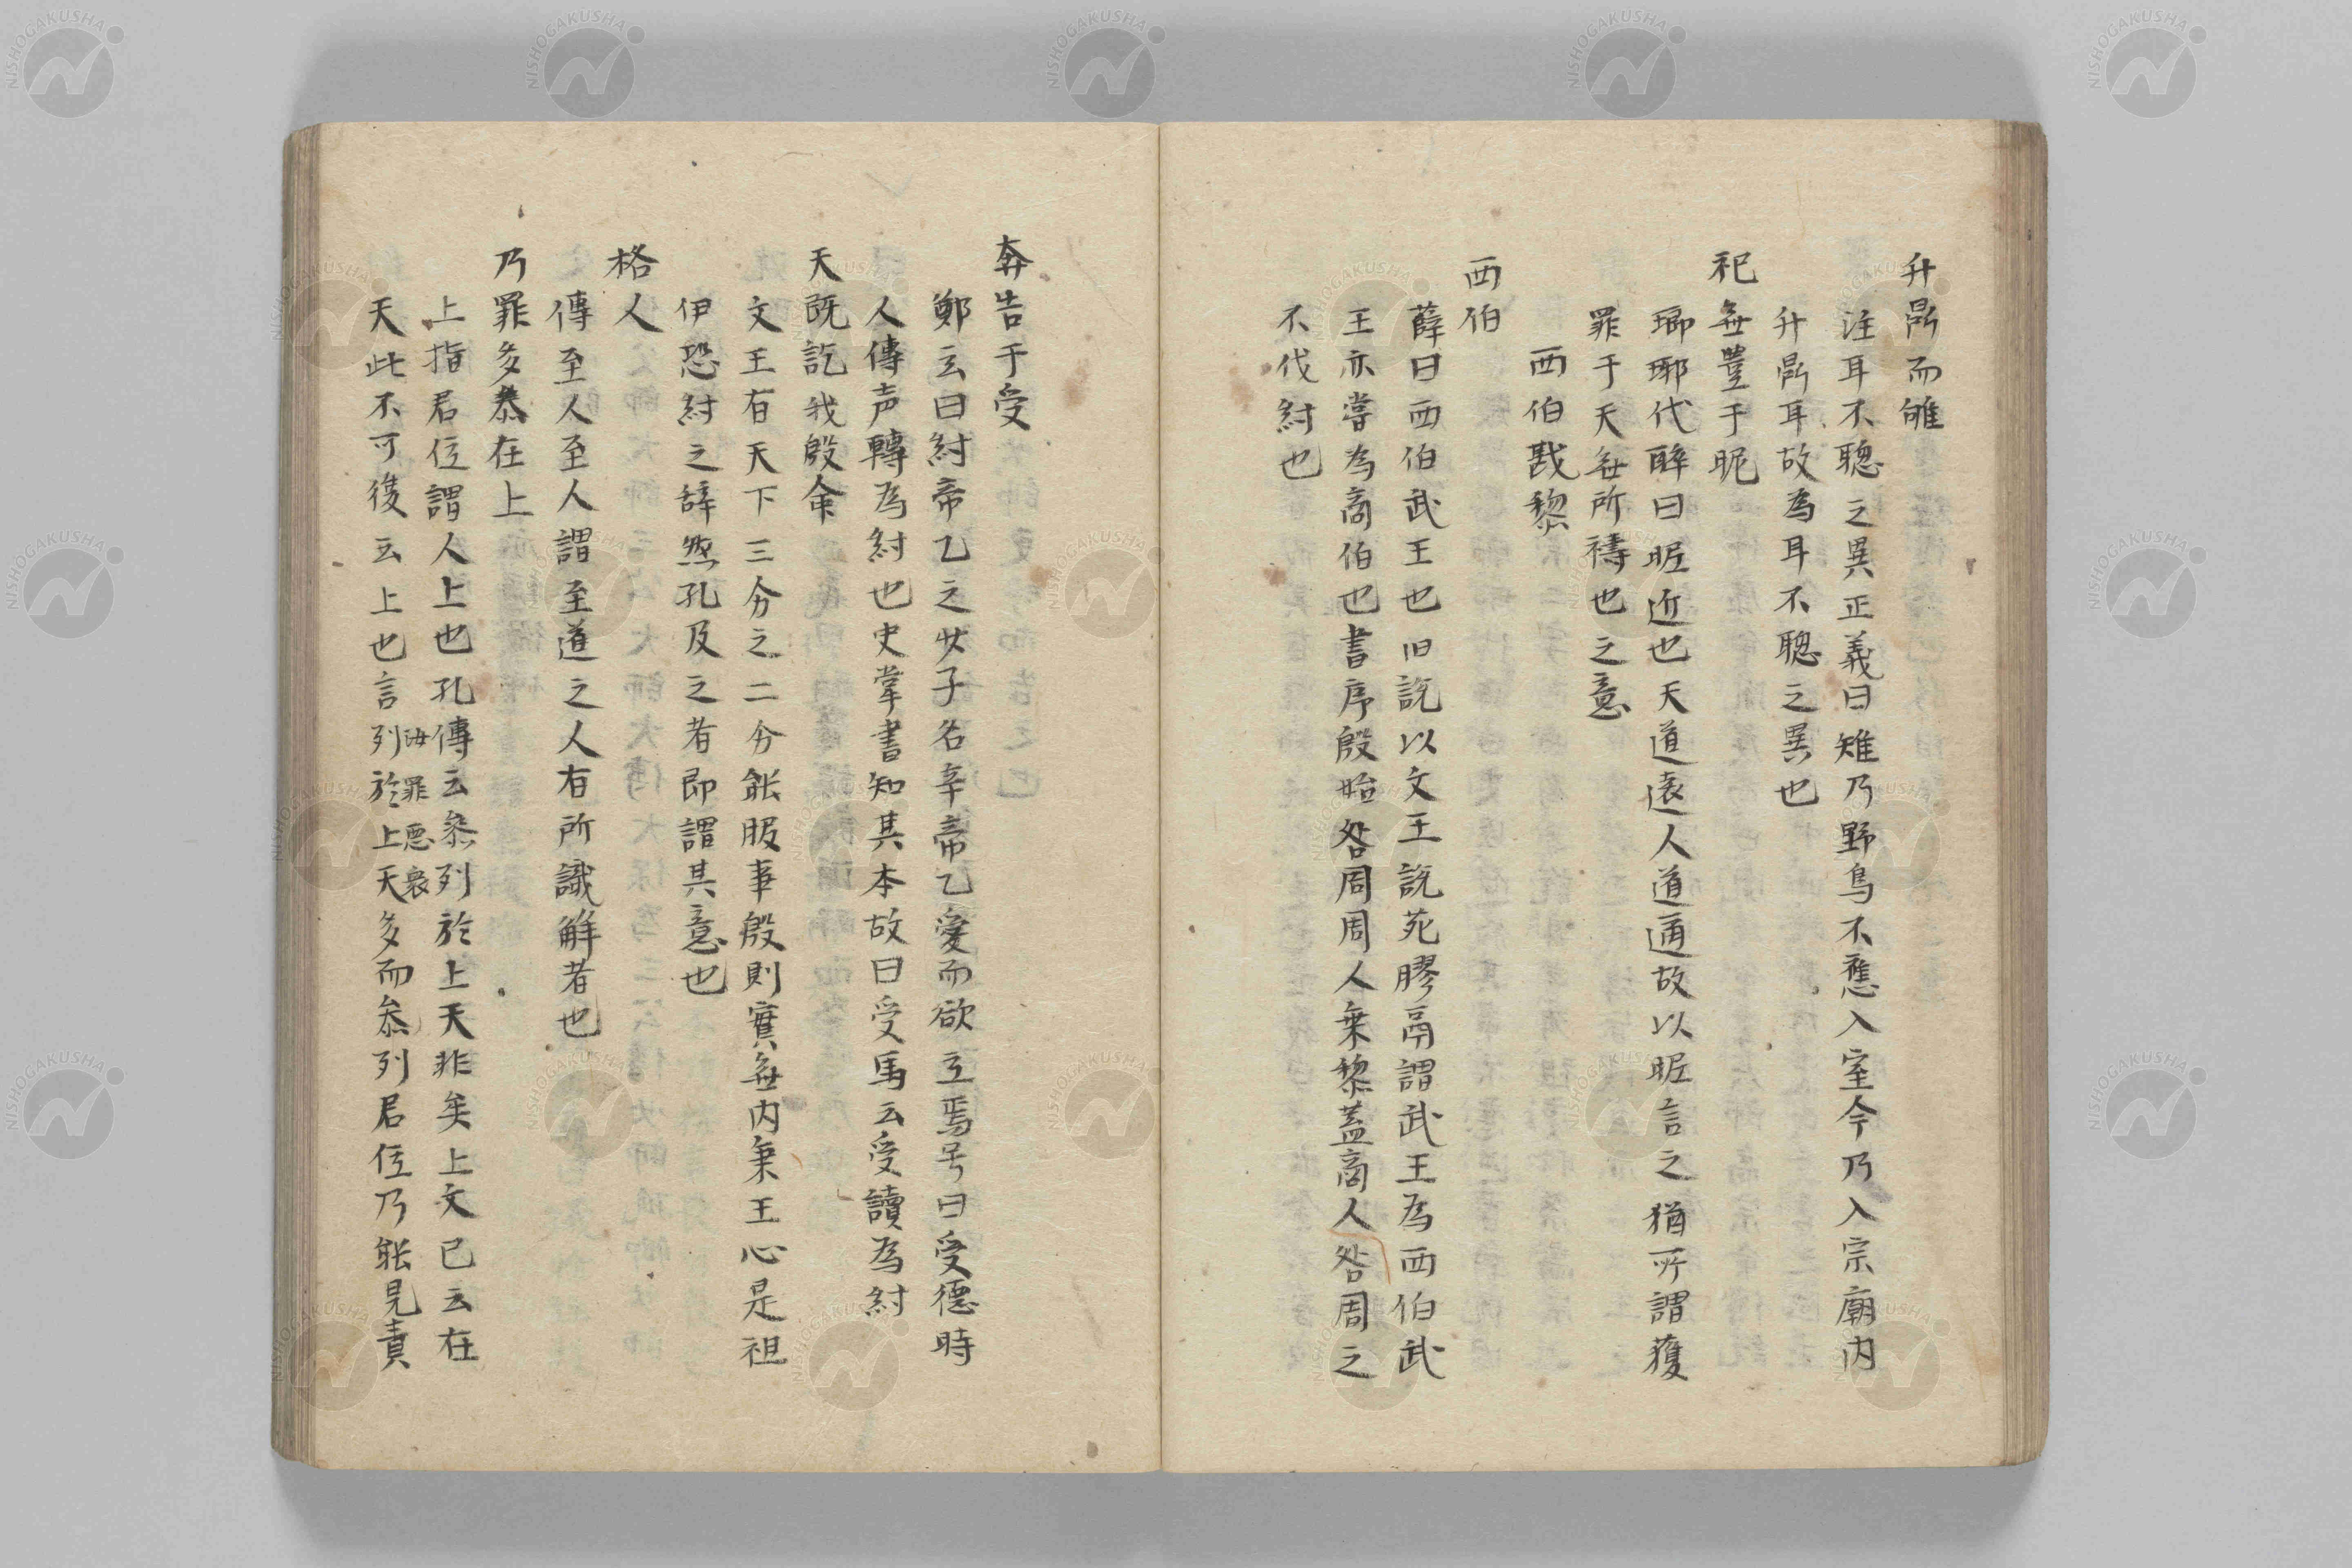 升鼎而雊
注耳不聰之異正義曰雉乃野鳥不應入室今乃入宗廟内
升鼎耳故為耳不聰之異也
祀無豐于昵
瑯琊代醉曰昵近也天道遠人道邇故以昵言之猶所謂獲
罪于天無所禱也之意
西伯戡黎
西伯
薛曰西伯武王也旧説以文王説苑膠鬲謂武王為西伯武
王亦嘗為商伯也書序殷始咎周周人乗黎蓋商人咎周之
不伐紂也
奔告于受
鄭云曰紂帝乙之少子名辛帝乙愛而欲立焉号曰受德時
人傳声轉為紂也史掌書知其本故曰受馬云受讀為紂
天既訖我殷命
文王有天下三分之二分能服事殷則實無内棄王心是祖
伊恐紂之辞然孔及之者即謂其意也
格人
傳至人至人謂至道之人有所識解者也
乃罪多叅在上
上指君位謂人上也孔傳云叅列於上天非矣上文已云在
天此不可後云上也言汝罪惡衆多而叅列君位乃能見責
列於上天
NISHOGAKUSHA